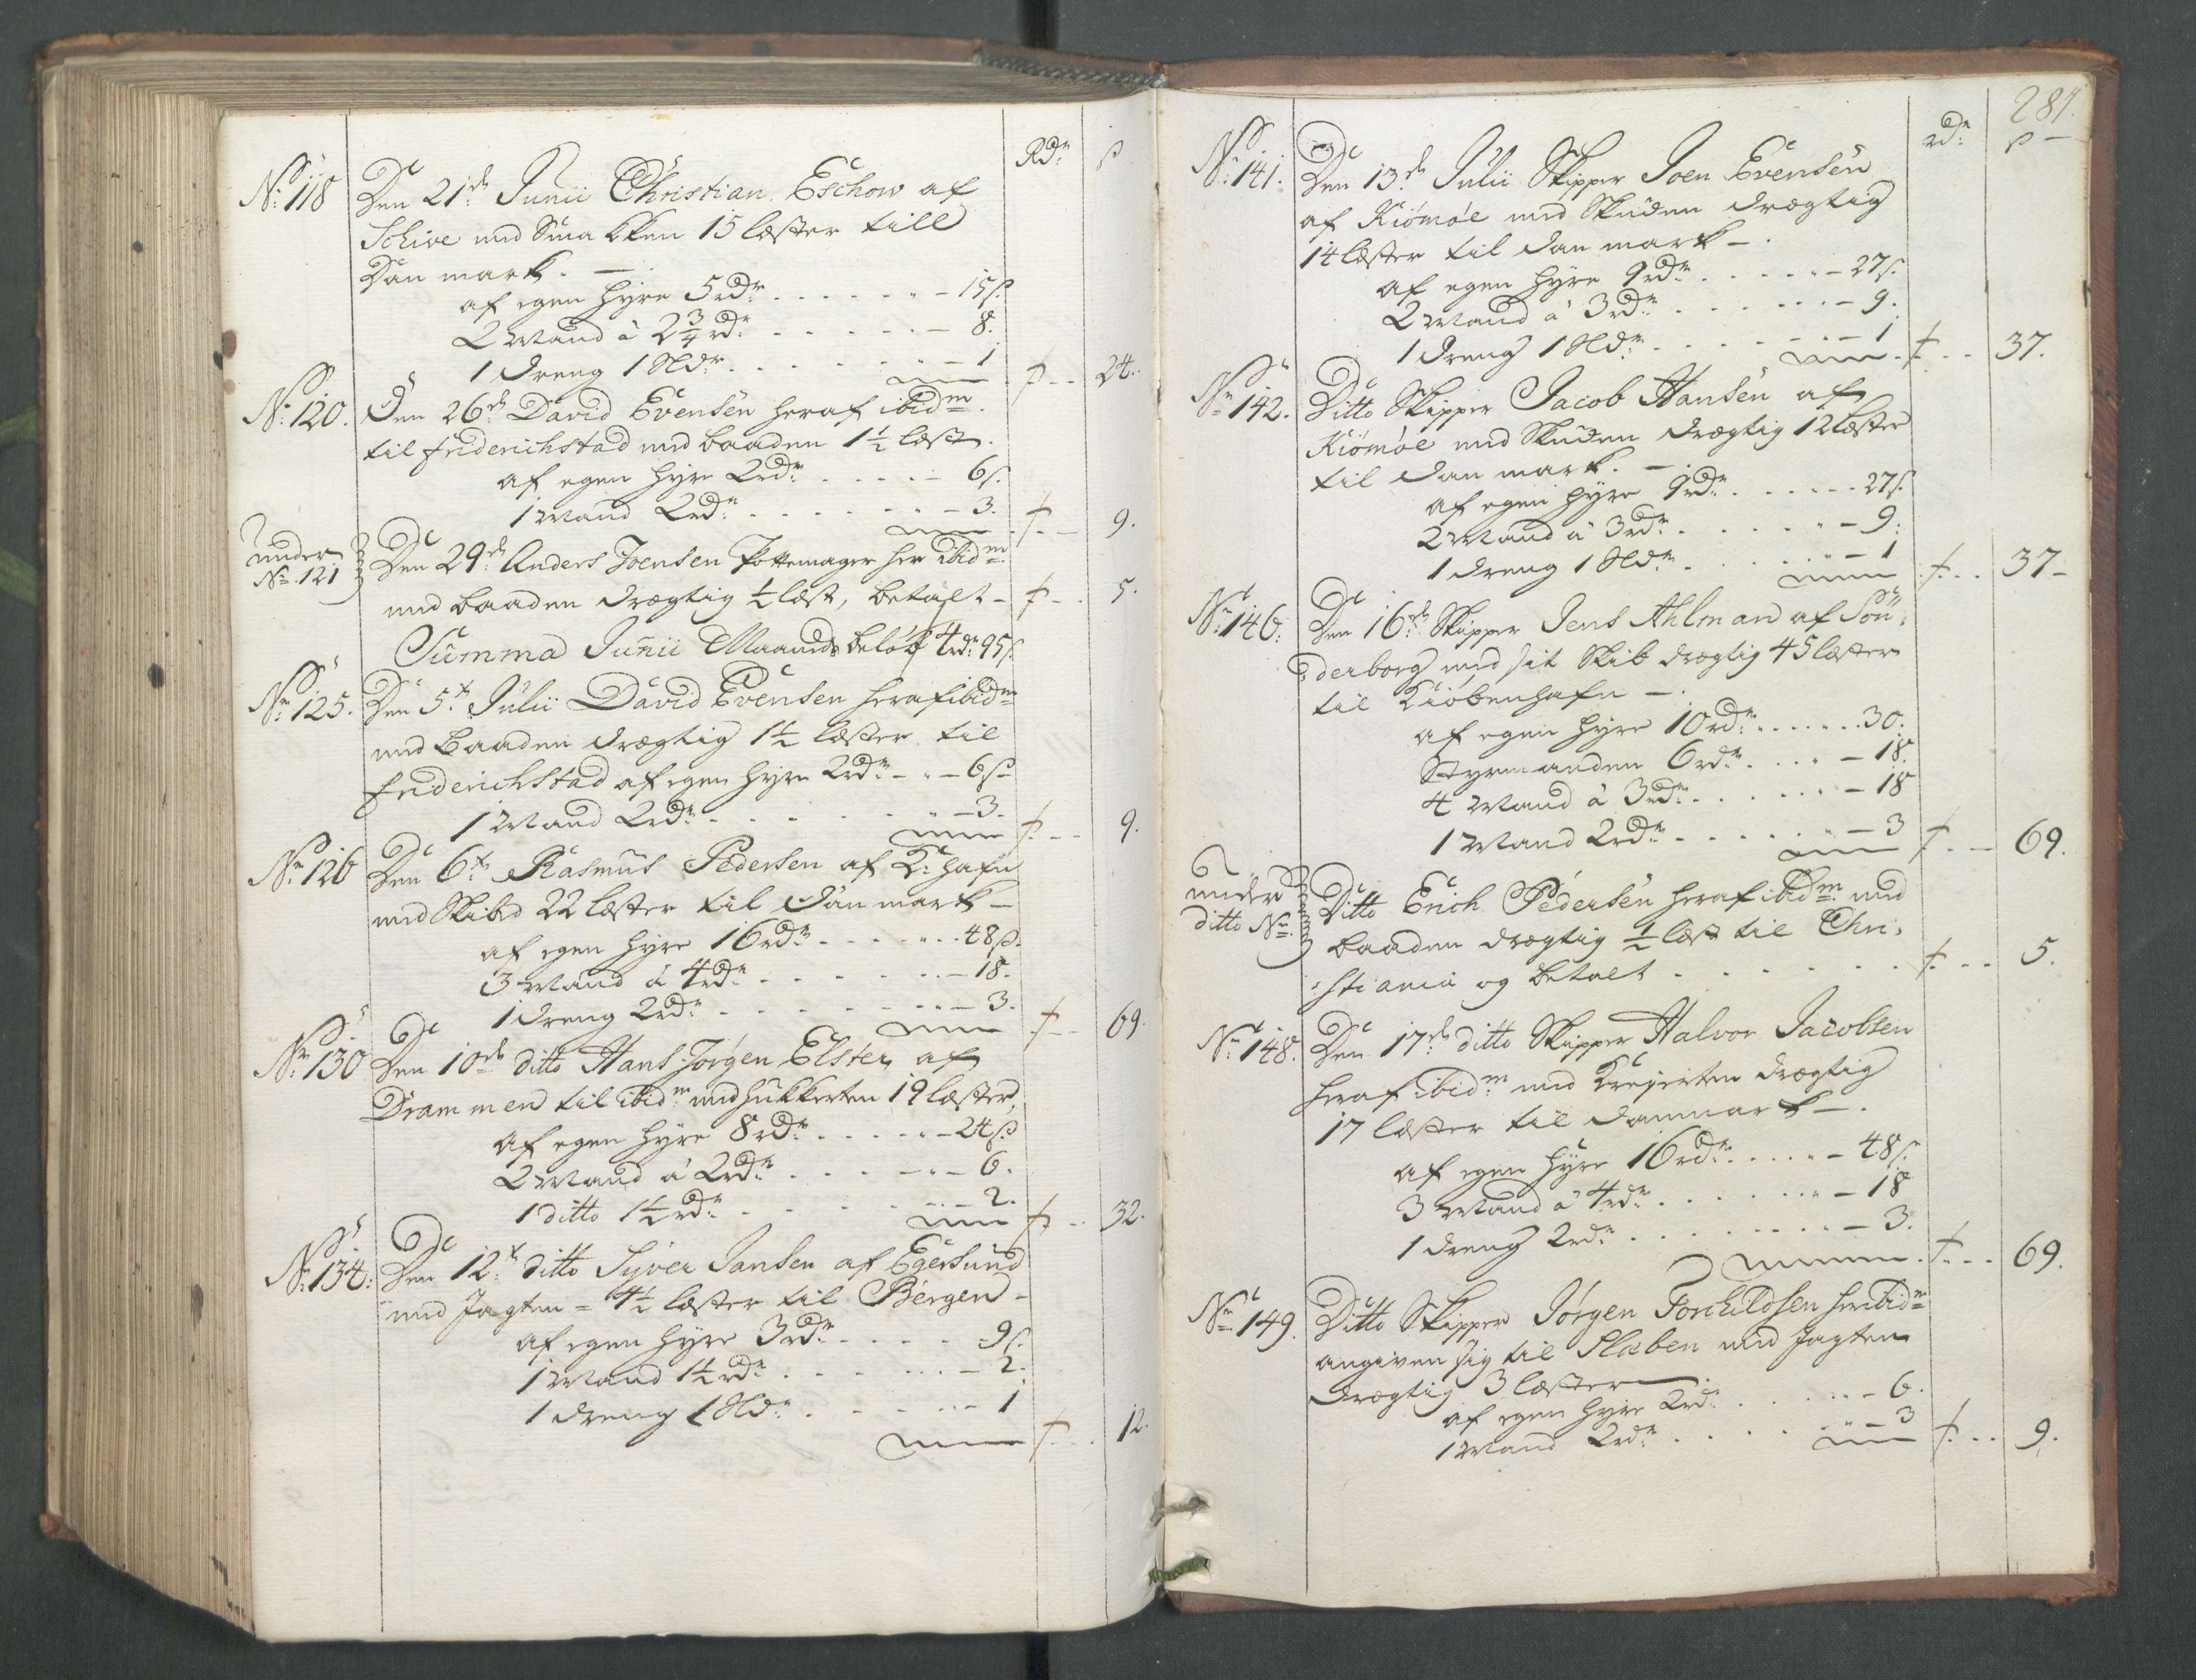 Rdr ß
No 118 Den 21de Junii Christian Eschow af
Schive med Smakken 15 læster till
Danmark. —
af egen Hyre 5 rdr . . . . - 15 ß.
2 Mand à 2¾ rdr . . . . - 8.
1 dreng 1 Sldr . . . . - 1 . . 24.
No 120. Den 26de David Evensen her af ibidm
til friderichstad med baaden 1½ læst.
af egen Hyre 2 rdr . . . . - 6 ß.
1 Mand 2 rdr . . . . - 3. . . 9.
under
No 121 Den 29de Anders Joensen Pottemager her ibidm
med baaden drægtig ½ læst, betalt - . . 5.
Summa Junii Maaneds beløb 4 rdr 95 ß.
No 125. Den 5te Julii David Evensen her af ibidm
med Baaden drægtig 1½ læster til
friderichstad af egen Hyre 2 rdr - . - 6 ß
1 Mand 2 rdr . . . . - 3. . . 9.
No 126 Den 6te Rasmus Pedersen af K:hafn
med Skibd 22 læster til Danmark -
af egen Hyre 16 rdr . . . . 48 ß.
3 Mand à 4 rdr . . . . - 18.
1 dreng 2 rdr . . . . - 3. . . 69.
No 130 Den 10de ditto Hans Jørgen Elster af
Drammen til ibidm med Hukkerten 19 læster,
af egen Hyre 8 rdr . . . . - 24 ß
2 Mand à 2 rdr . . . . - 6.
1 ditto 1½ rdr . . . . - 2. . . 32.
No 134: Den 12te ditto Syver Jansen af Egersund
med Jagten = 4½ læster til Bergen -
af egen Hyre 3 rdr . . . . 9 ß.
1 Mand 1½ rdr . . . . - 2.
1 dreng 1 Sldr . . . . - 1
. . 12.
281.
rdr ß
No 141. Den 13de Julii Skipper Joen Evensen
af Kiömöe med Skuden drægtig
14 læster til danmark - .
af egen Hyre 9 rdr . . . . - 27 ß.
2 Mand à 3 rdr . . . . - 9.
1 dreng 1 Sldr . . . . - 1 . . 37.
No 142. Ditto Skipper Jacob Hansen af
Kiömöe med Skuden drægtig 12 læster
til danmark. - .
af egen Hyre 9 rdr . . . . 27 ß.
2 Mand à 3 rdr . . . . - 9.
1 dreng 1 Sldr . . . . - 1 . . 37 -
No 146: Den 16de Skipper Jens Ahlman af Sön:
:derborg med sit Skib drægtig 45 læster
til Kiöbenhafn - .
af egen Hyre 10 rdr . . . . 30.
Styrmanden 6 rdr . . . . - 18.
4 Mand à 3 rdr . . . . - 18
1 Mand 2 rdr . . . . - 3 . . 69.
under
ditto No Ditto Erich Pedersen her af ibidm med
baaden drægtig ½ læst til Chri:
:stiania og betalt . . . . . . 5.
No 148. Den 17de ditto Skipper Halvor Jacobsen
her af ibidm med Krejerten drægtig
17 læster til danmark - .
af egen Hyre 16 rdr . . . . - 48 ß.
3 Mand à 4 rdr . . . . - 18
1 dreng 2 rdr . . . . - 3.
. . 69.
No 149. Ditto Skipper Jørgen Torchildsen her ibidm
angiven sig til Slæben med Jagten
drægtig 3 læster
af egen Hyre 2 rdr . . . . - 6.
1 Mand 2 rdr . . . . - 3 . . 9.